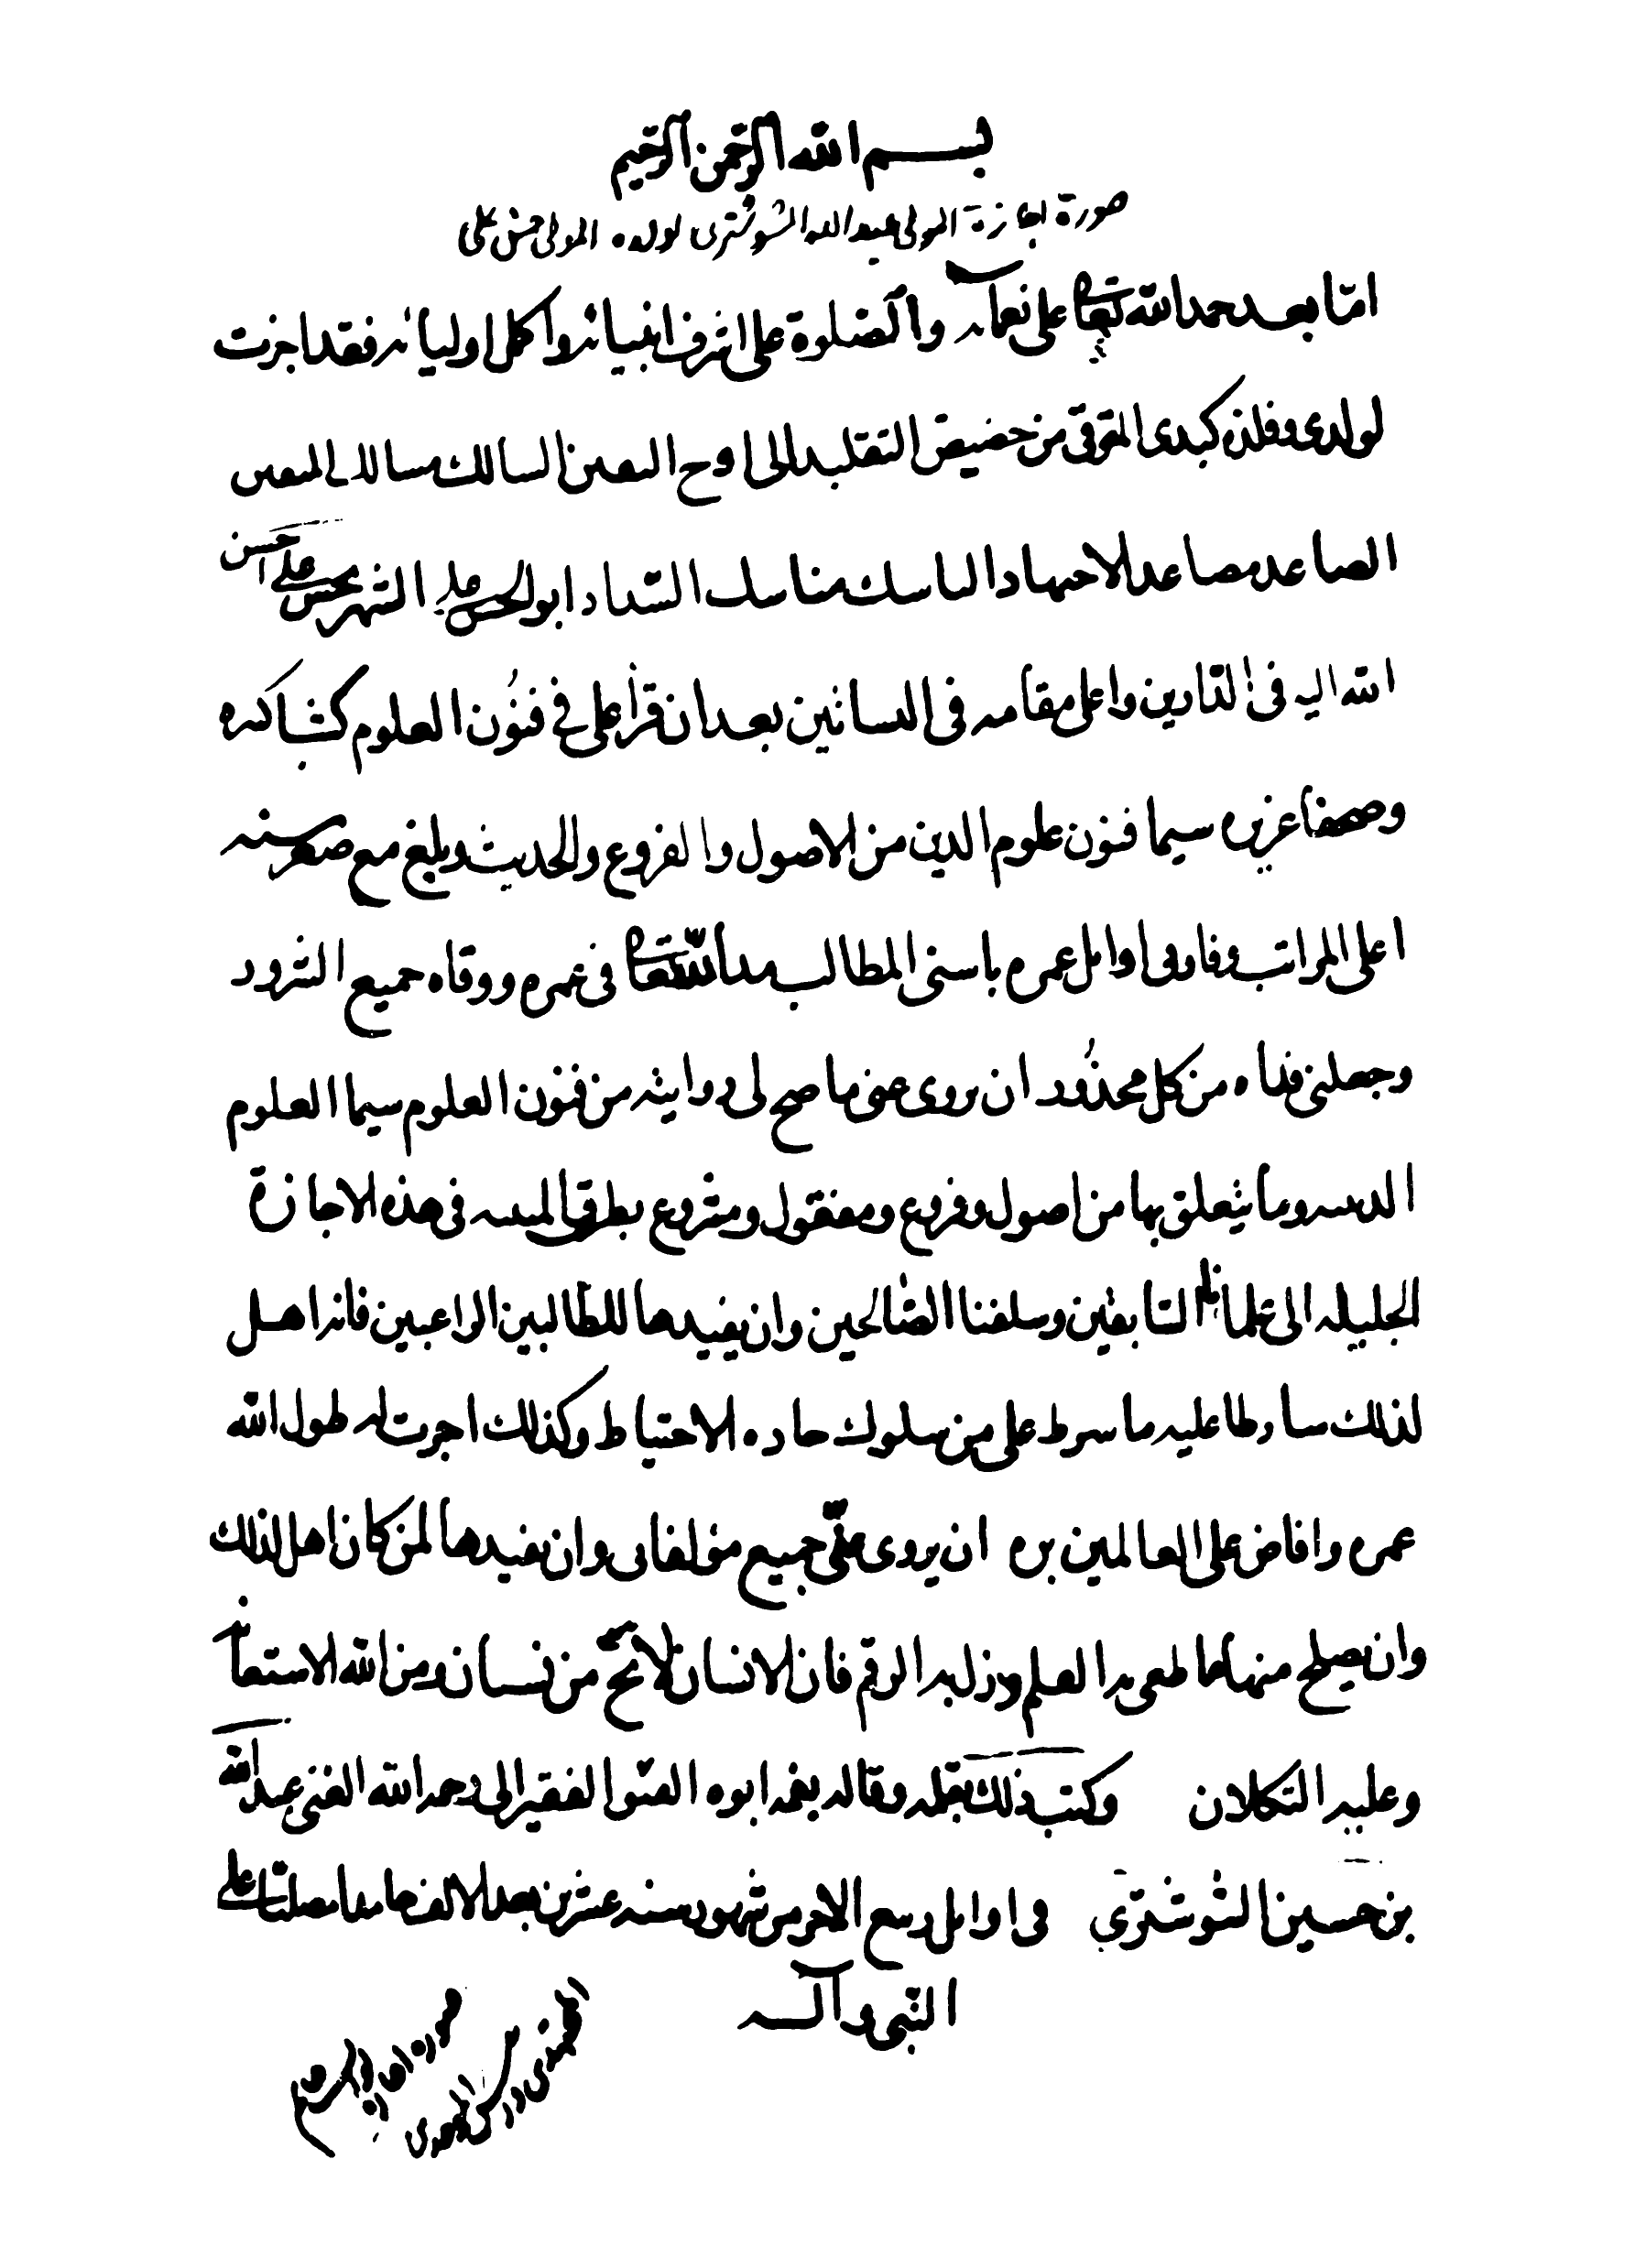 بسم الله الرحمن الرحيم
صورة اجازة المولى عبد الله الشوشترى لولده المولى حسن على
امّا بعد حمد الله تعالى على نعمائه والصّلوة على اشرف انبيائه واكمل اوليائه فقد اجزت
لولدى وفلذة كبدى المترقى من حضيض التقليد الى اوج اليقين السالك مسالك المتقين
الصاعد مصاعد الاجتهاد الناسك مناسك السّداد ابو الحسن على الشهير بحسن على احسن
الله اليه فى الدّارين واعلى مقامه فى النشأتين بعد ان قرأ علىّ فى فنون العلوم كتبا كثيره
وصحفا عزيزه سيما فنون علوم الدين من الاصول والفروع والحديث وبلغ مع صغر سنه
اعلى المراتب وفاز فى اوايل عمره باسنى المطالب مد الله تعالى فى عمره ووقاه جميع الشرور
وجعلنى فداه من كل محذور ان يروى عنى ما صح لى روايته من فنون العلوم سيما العلوم
الدينيه وما يتعلق بها من اصول وفروع ومعقول ومشروع بطرقى المبينه فى هذه الاجازة
الجليله الى علمائنا السّابقين وسلفنا الصّالحين وان يفيدها للطّالبين الراغبين فانه اهل
لذلك شارطا عليه ما شرط على من سلوك جاده الاحتياط وكذلك اجزت له طول الله
عمره وافاض على العالمين بره ان يروى عنّى جميع مؤلفاتى وان يفيدها لمن كان اهلا لذلك
وان يصلح منها ما طغى به القلم وزل به الرقم فان الانسان لا يخ من نسيان ومن الله الاستعانة
وعليه التكلان وكتب ذلك بقلمه وقاله بفمه ابوه الفقير الى رحمه الله الغنى عبد الله
بن حسين الشوشترى فى اوايل ربيع الاخر من شهور سنه عشرين بعد الالف حامدا مصليا على
النّبى وآله